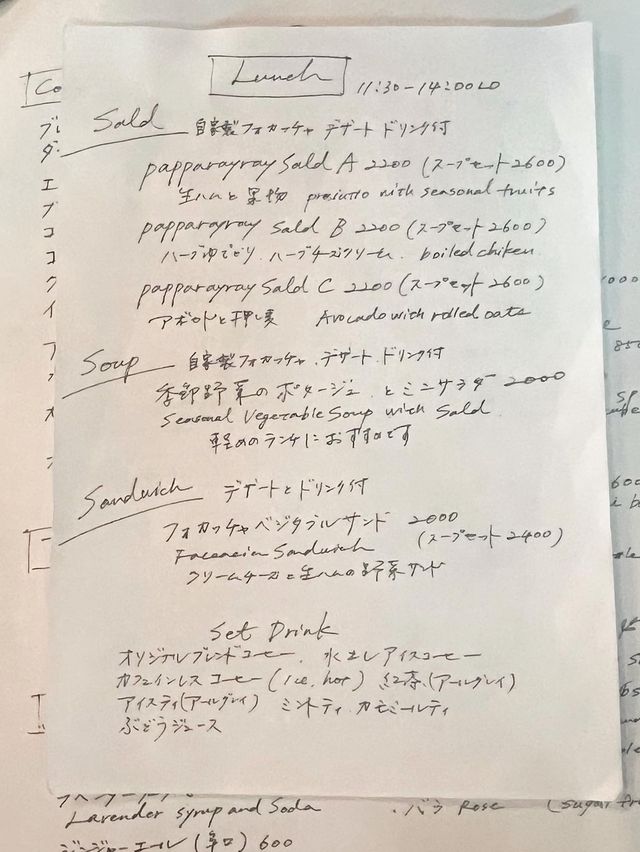 Lunch 11:30-14:00LO
Sald 自家製フォカッチャ デザート ドリンク付
papparayray Sald A 2200 (スープセット2600)
生ハムと果物 prosiutto with seasonal fruits
papparayray Sald B 2200 (スープセット2600)
ハーブゆでどり ハーブチーズクリーム boiled chiken
papparayray Sald C 2200 (スープセット2600)
アボカドと押し麦 Avocado with rolled oats
Soup 自家製フォカッチャ.デザート.ドリンク付
季節野菜のポタージュ とミニサラダー 2000
Seasonal Vegetable Soup with Sald
軽めのランチにおすすめです
Sandwich デザートとドリンク付
フォカッチャベジタブルサンド 2000
(スープセット2400)
Sandwich
クリームチーズと生ハムの野菜サンド
Set Drink
オリジナルブレンドコーヒー. 水出しアイスコーヒー
カフェインレスコーヒー (Ice. hot) 紅茶(アールグレイ)
アイスティ(アールグレイ) ミントティ カモミールティ
ぶどうジュース
Lavender syrup and Soda
・バラ Rose (sugar
ジンジャーエール (辛口) 600